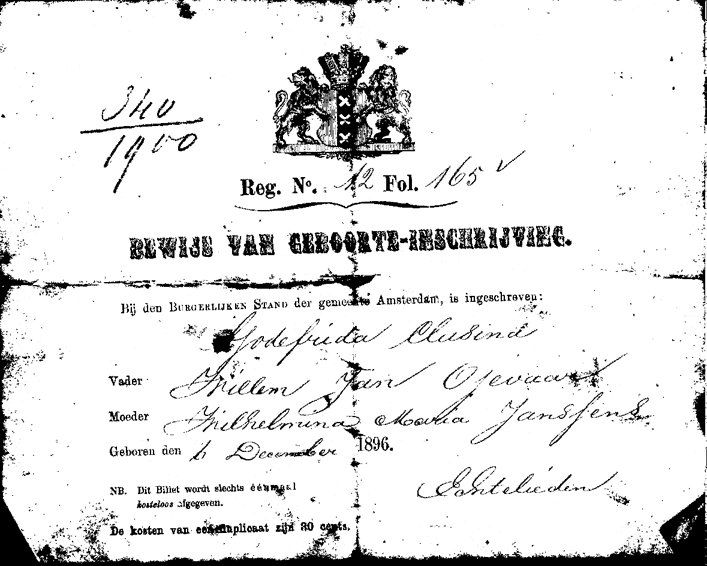 340
1900
Reg. No. 12 Fol. 165
BEWIJS VAN GEBOORTE-INSCHRIJVING.
Bij den BURGERLIJKEN STAND der gemeente Amsterdam, is ingeschreven:
Godefrida Clusina
Vader Willem Jan Ojevaar
Moeder Wilhelmina Maria Janssens
Geboren den December 1896.
NB. Dit Biliet wordt slechts éénmaal
kosteloos afgegeven.
Echtelieden
De kosten van een duplicaat zijn 30 cents.